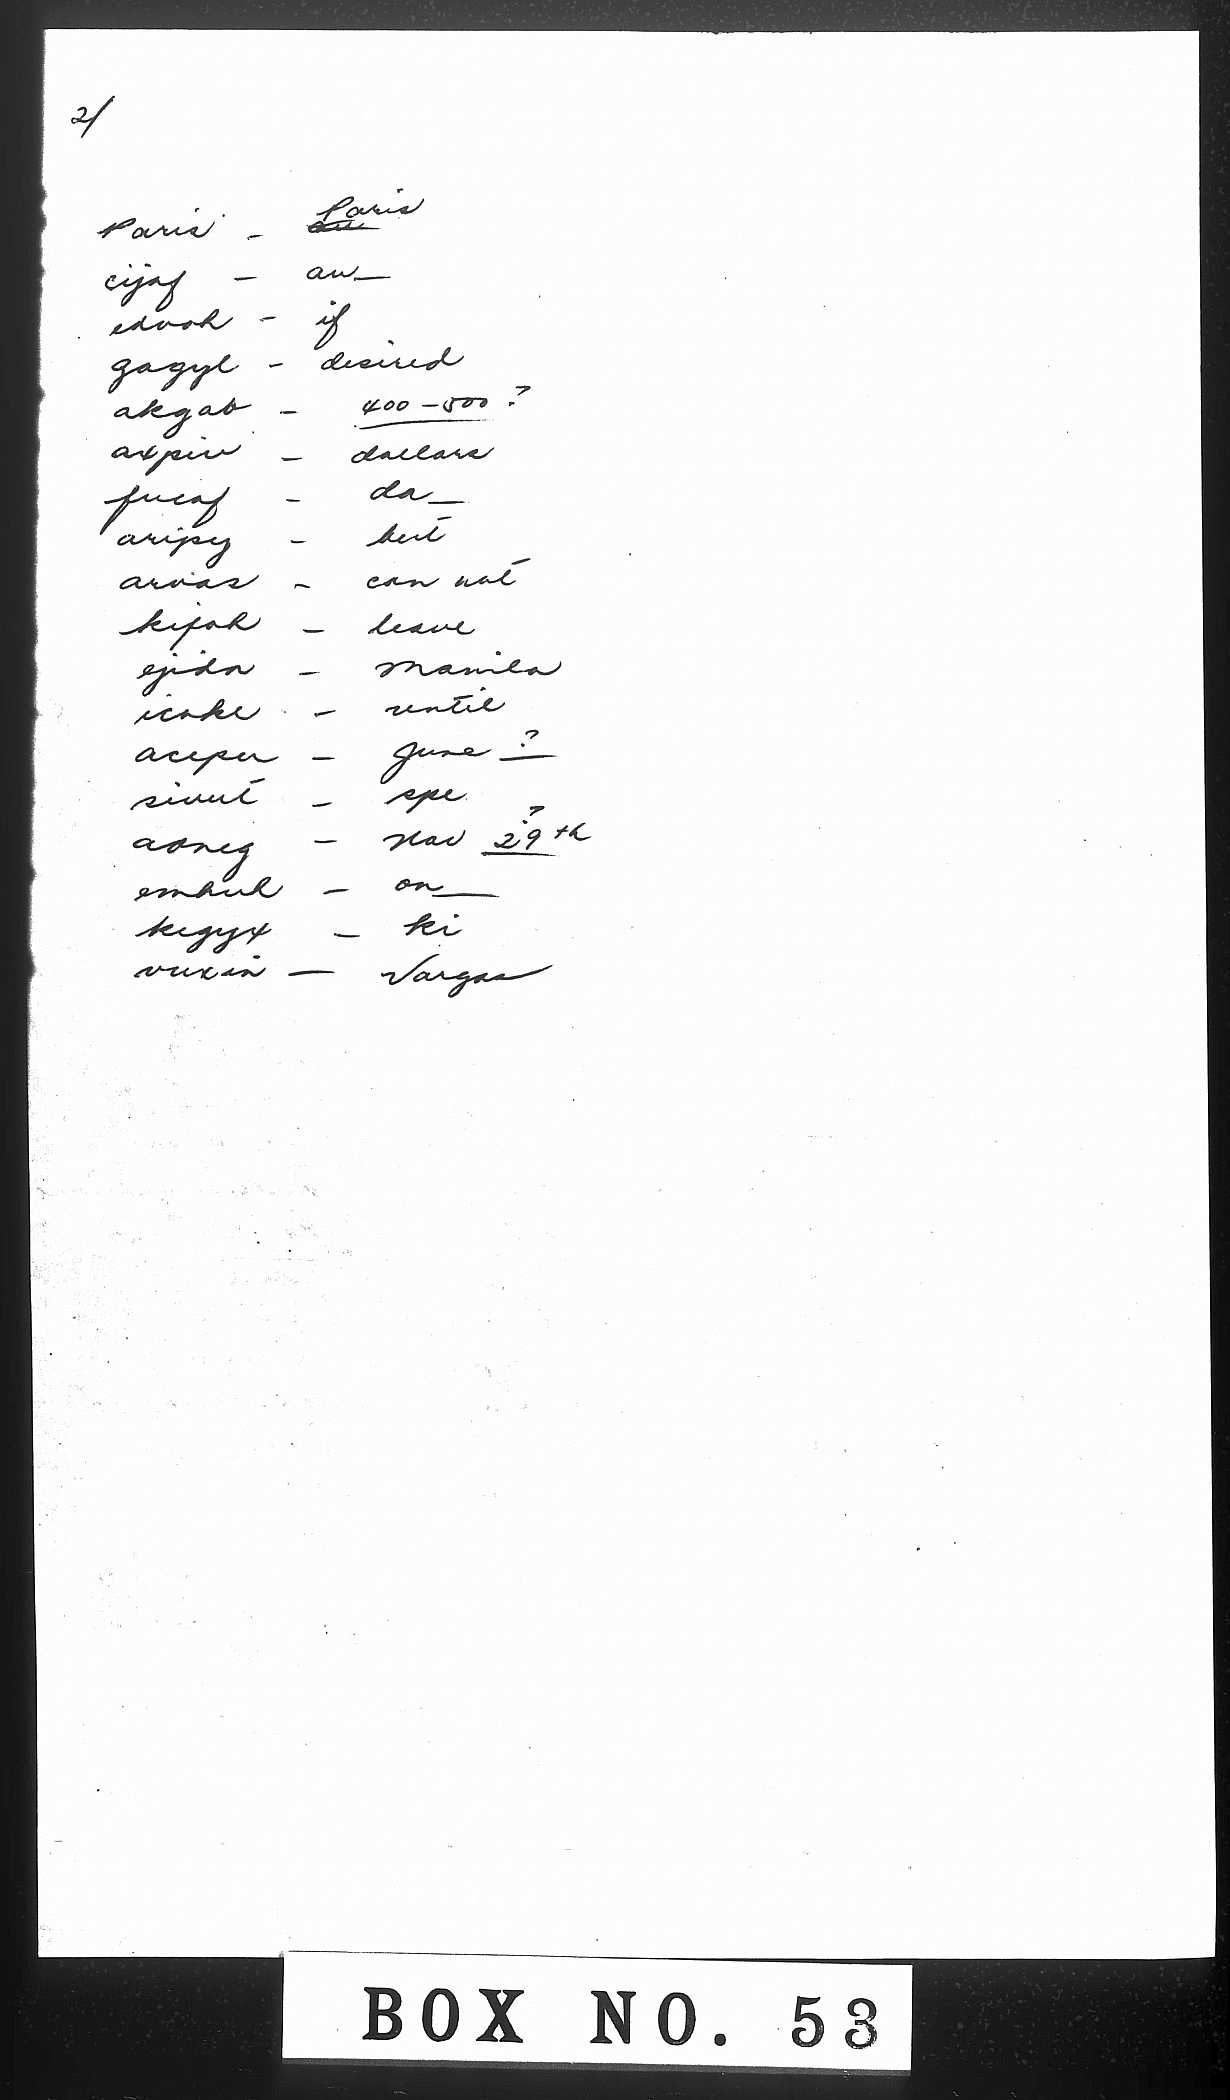 2/
Paris - Paris
cijaf - au_
edvoh - if
gagyl - desired
akgab - 400-500 ?
axpiv - dollars
fucaf - da_
aripy - but
arvas - can not
kijah - leave
ejida - Manila
icake - until
acepu - June ?
sivut - spe
aoneg - Nov 29th ?
embul - on_
kegyx - ki
vuxin - Vargas
BOX NO. 53